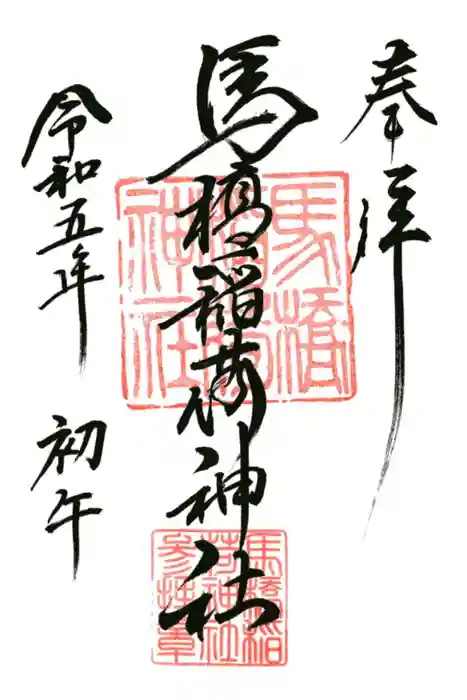 奉拝
馬橋稲荷神社
令和五年
初午
馬橋
稲荷
神社
馬橋稲
荷神社
参拝章